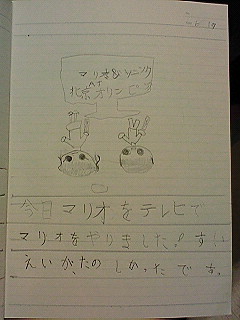 マリオ&ソニック
AT
北京オリンピック
今日マリオをテレビで
マリオをやりました。すい
えいがたのしかったです。